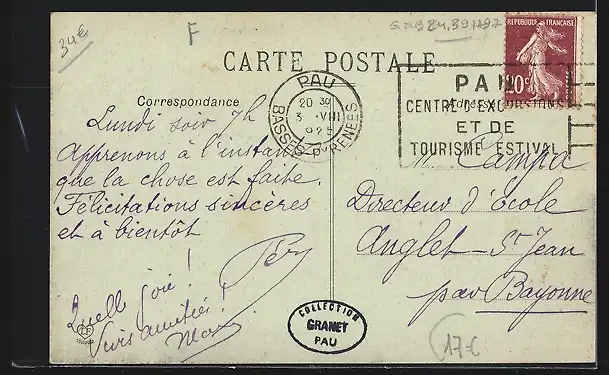 34€
F
CARTE POSTALE
RÉPUBLIQUE FRANÇAISE
20c
Correspondance
Adresse
PAU
20 30
3 VIII
BASSES PYRENEES
PAU
CENTRE D'EXCURSIONS
ET DE
TOURISME ESTIVAL
Lundi soir 7h
Apprenons à l'instant
que la chose est faite.
Félicitations sincères
et à bientôt
Quelle joie !
Vives amitiés !
M. Campa
Directeur d'école
Anglet - St Jean
par Bayonne
COLLECTION
GRANET
PAU
17€